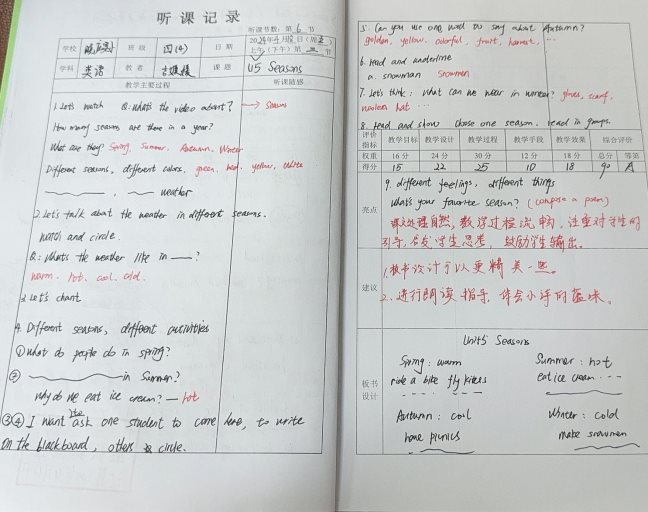 听课记录
听课节数: 第 6 节
学校 班级 四(4) 日期 2024年4月 日(周三)
上午(下午)第 二 节
学科 英语 教者 课题 U5 Seasons
教学主要过程 听课随感
1. Let's watch Q: What's the video about? → Seasons
How many seasons are there in a year?
What are they? Spring, Summer, Autumn, Winter
Different seasons, different colors, green, red, yellow, white
____, ____ weather
2. Let's talk about the weather in different seasons.
Watch and circle.
Q: What's the weather like in ____?
warm, hot, cool, cold.
3. Let's chant
4. Different seasons, different activities
① What do people do in spring?
② ____ in Summer?
why do we eat ice cream? — hot
③④ I want to ask one student to come here, to write
on the blackboard, others circle.
5. Can you use one word to say about Autumn?
golden, yellow, colorful, fruit, harvest, ...
6. Read and underline
a. snowman Snowmen
7. Let's think: What can we wear in winter? gloves, scarf,
woolen hat ...
8. Read and show chose one season. read in groups.
评价指标 教学目标 教学设计 教学过程 教学手段 教学效果 综合评价
权重 16分 24分 30分 12分 18分 总分 等第
得分 15 22 25 10 18 90 A
亮点
9. different feelings, different things
What's your favorite season? (compose a poem)
课文处理自然,教学过程流畅,注重对学生的
引导,启发学生思考,鼓励学生输出。
建议
1. 板书设计可以更精美一些。
2. 进行朗读指导,体会小诗的韵味。
板书设计
Unit5 Seasons
Spring: warm Summer: hot
ride a bike fly kites eat ice cream ...
Autumn: cool Winter: cold
have picnics make snowmen